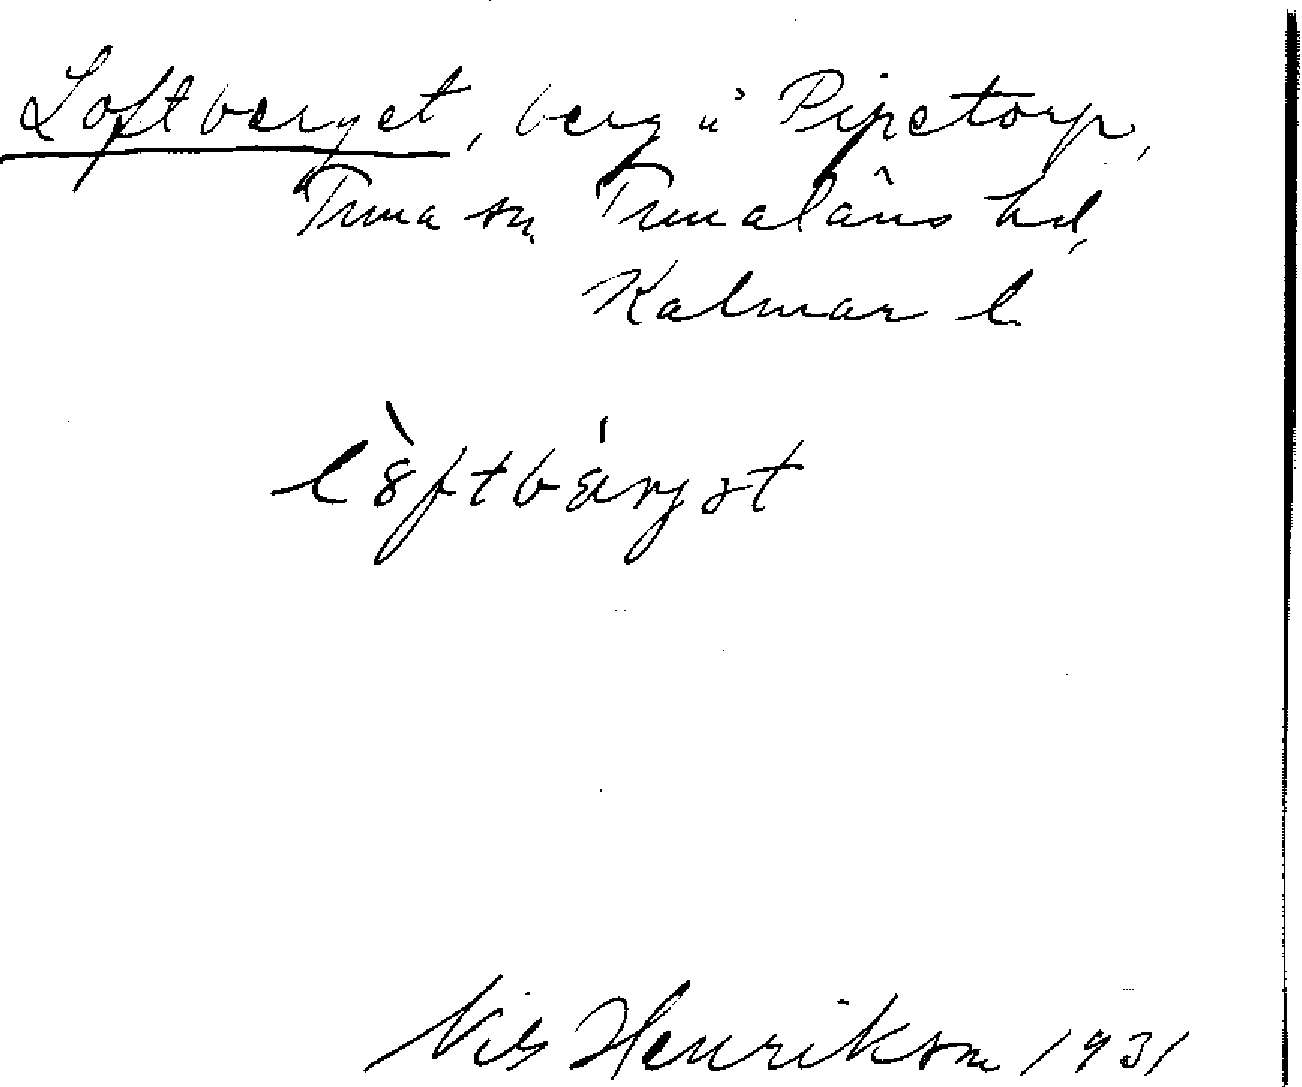 Loftberget, berg i Pipetorp,
Tuna sn, Tunaläns hd,
Kalmar l.
Nils Henrikson 1931